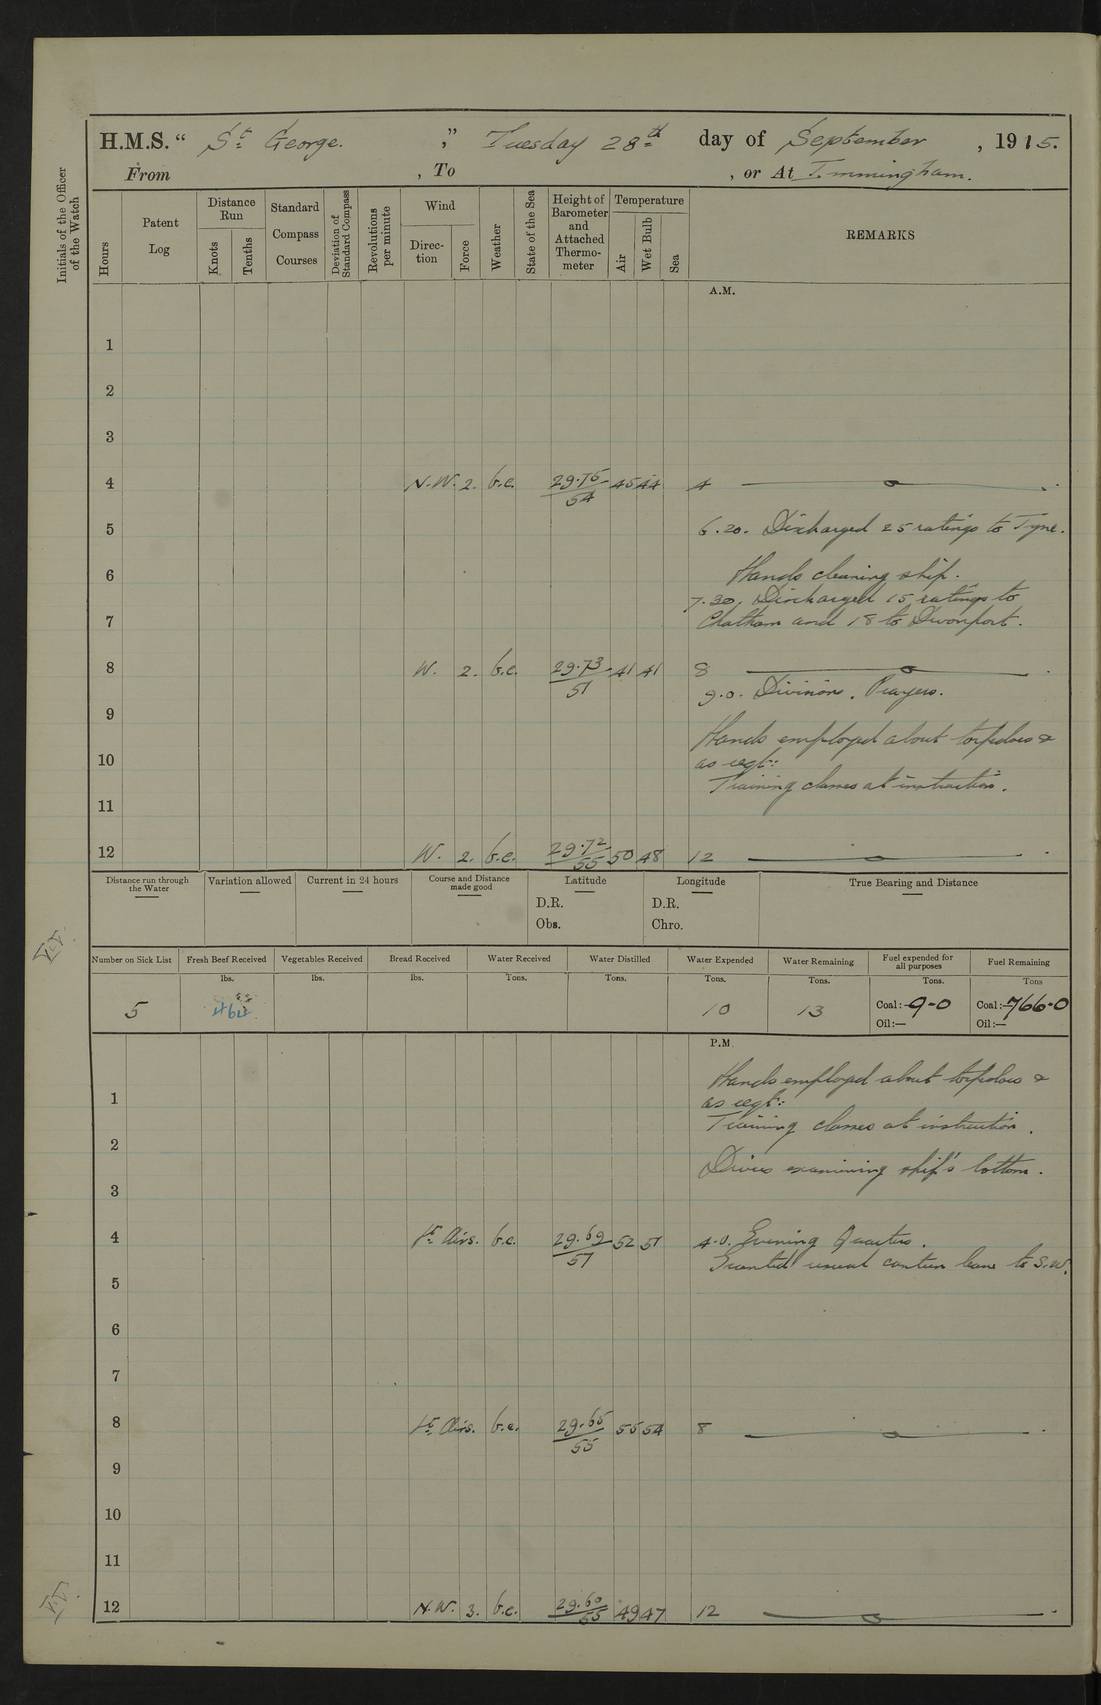 H.M.S. “ St George. ”, Tuesday 28th day of September, 1915.
From , To , or At Immingham.
Initials of the Officer of the Watch
Hours
Patent Log
Distance Run
Knots
Tenths
Standard Compass Courses
Deviation of Standard Compass
Revolutions per minute
Wind
Direction
Force
Weather
State of the Sea
Height of Barometer and Attached Thermometer
Temperature
Air
Wet Bulb
Sea
REMARKS
A.M.
1
2
3
4 N.W. 2. b.c. 29.75/54 45 44 4
5 6.20. Discharged 25 ratings to Tyne.
6 Hands cleaning ship.
7.30. Discharged 15 ratings to
7 Chatham and 18 to Devonport.
8 W. 2. b.c. 29.73/51 41 41 8
9.0. Divisions. Prayers.
9
Hands employed about torpedoes &
10 as reqt:
Training classes at instruction.
11
12 W. 2. b.c. 29.72/55 50 48 12
Distance run through the Water
Variation allowed
Current in 24 hours
Course and Distance made good
Latitude
D.R.
Obs.
Longitude
D.R.
Chro.
True Bearing and Distance
Number on Sick List
Fresh Beef Received
Vegetables Received
Bread Received
Water Received
Water Distilled
Water Expended
Water Remaining
Fuel expended for all purposes
Fuel Remaining
lbs. lbs. lbs. Tons. Tons. Tons. Tons. Tons. Tons
5 464 10 13 Coal:— 9-0 Coal:— 766-0
Oil:— Oil:—
P.M.
Hands employed about torpedoes &
1 as reqt:
Training classes at instruction.
2
Divers examining ship's bottom.
3
4 Lt Airs. b.c. 29.69/57 52 51 4.0. Evening Quarters.
Granted usual canteen leave to S.W.
5
6
7
8 Lt Airs. b.c. 29.65/55 55 54 8
9
10
11
12 N.W. 3. b.c. 29.60/55 49 47 12